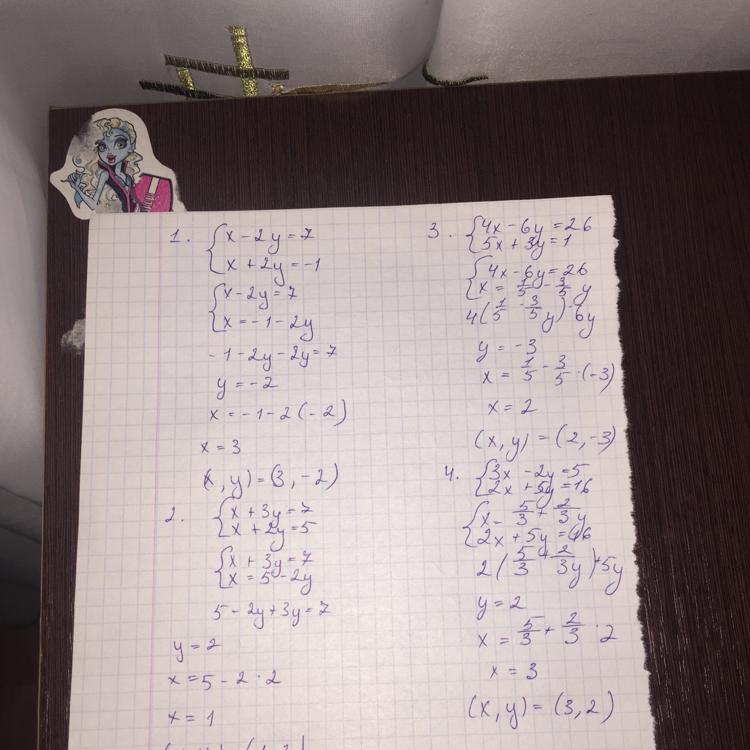 1. {x - 2y = 7
{x + 2y = -1
{x - 2y = 7
{x = -1 - 2y
-1 - 2y - 2y = 7
y = -2
x = -1 - 2(-2)
x = 3
(x, y) = (3, -2)
2. {x + 3y = 7
{x + 2y = 5
{x + 3y = 7
{x = 5 - 2y
5 - 2y + 3y = 7
y = 2
x = 5 - 2 · 2
x = 1
3. {4x - 6y = 26
{5x + 3y = 1
{4x - 6y = 26
{x = 1/5 - 3/5 y
4(1/5 - 3/5 y) - 6y
y = -3
x = 1/5 - 3/5 · (-3)
x = 2
(x, y) = (2, -3)
4. {3x - 2y = 5
{2x + 5y = 16
{x - 5/3 + 2/3 y
{2x + 5y = 16
2(5/3 + 2/3 y) + 5y
y = 2
x = 5/3 + 2/3 · 2
x = 3
(x, y) = (3, 2)